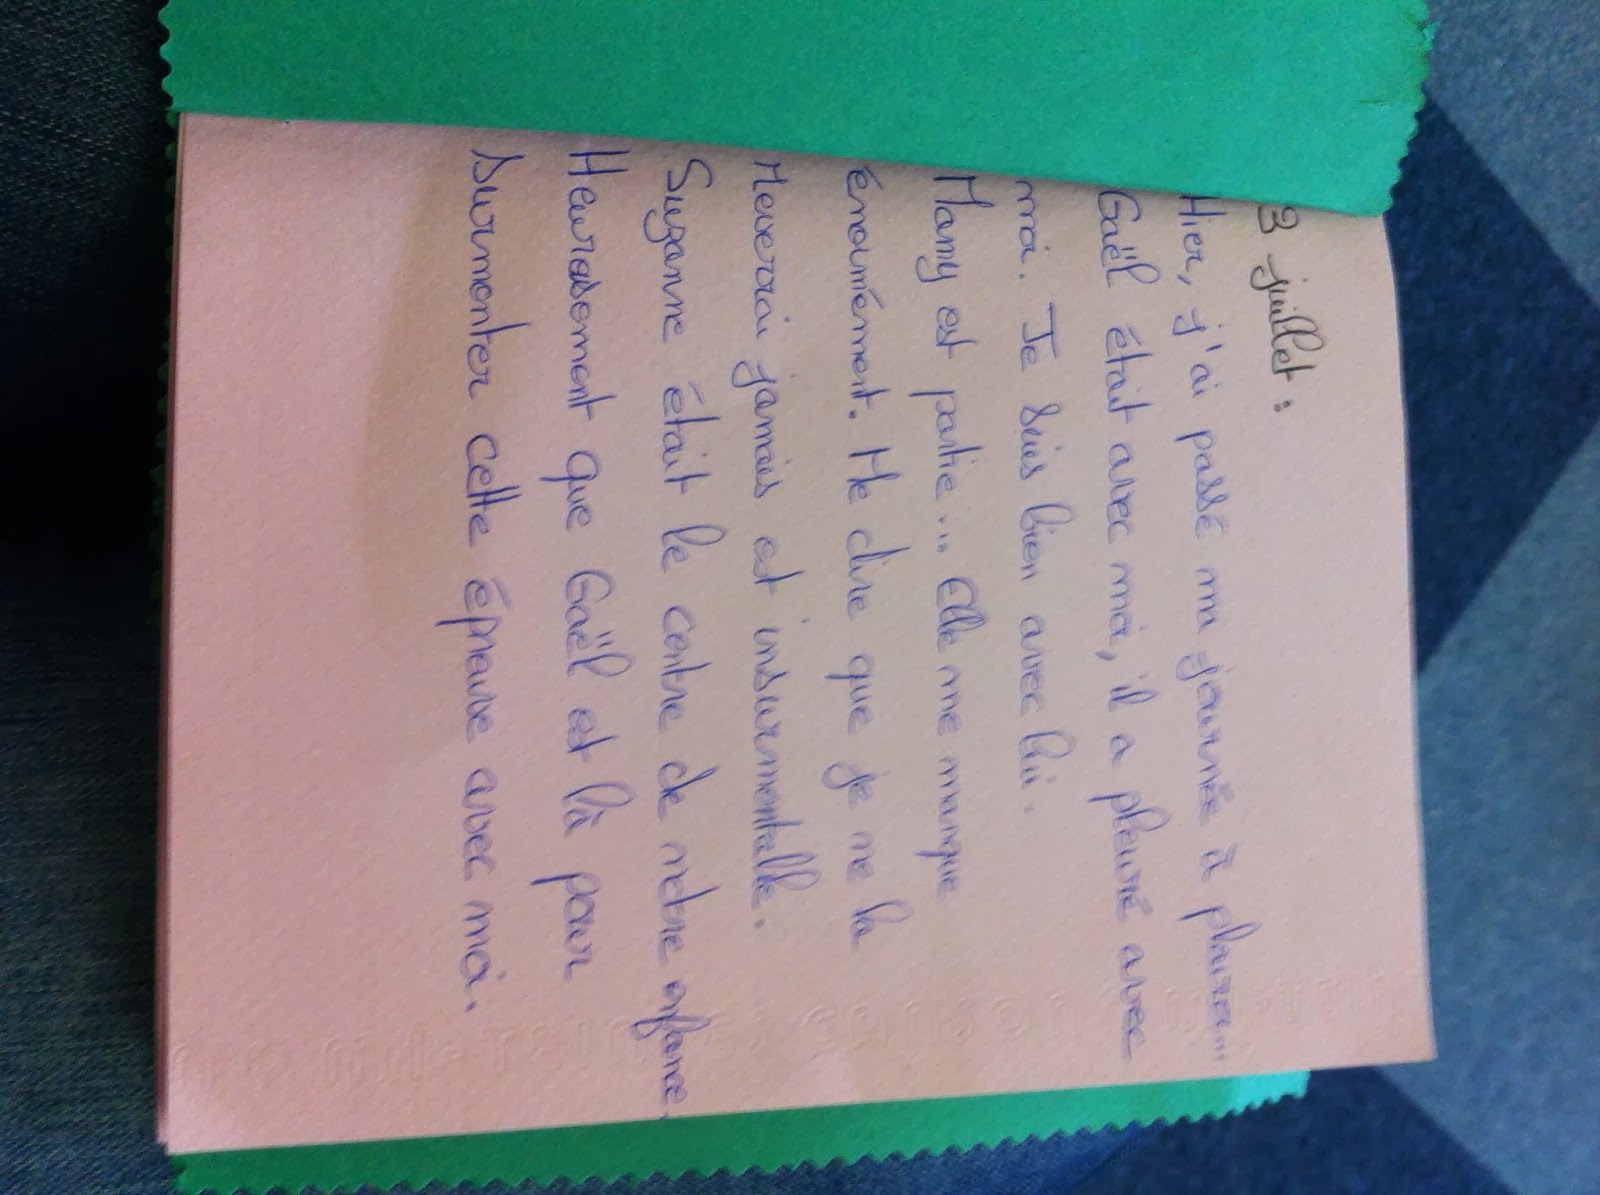 3 juillet :
Hier, j'ai passé ma journée à pleurer...
Gaël était avec moi, il a pleuré avec
moi. Je suis bien avec lui.
Mamy est partie... Elle me manque
énormément. Me dire que je ne la
reverrai jamais est insurmontable.
Suzanne était le centre de notre enfance.
Heurasement que Gaël est là pour
surmonter cette épreuve avec moi.